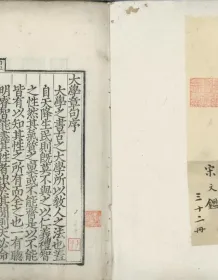 宋文鑑
三十二冊
大學章句序
大學之書古之大學所以教人之法也蓋
自天降生民則既莫不與之以仁義禮智
之性矣然其氣質之稟或不能齊是以不能
皆有以知其性之所有而全之也一有聰
明睿智能盡其性者